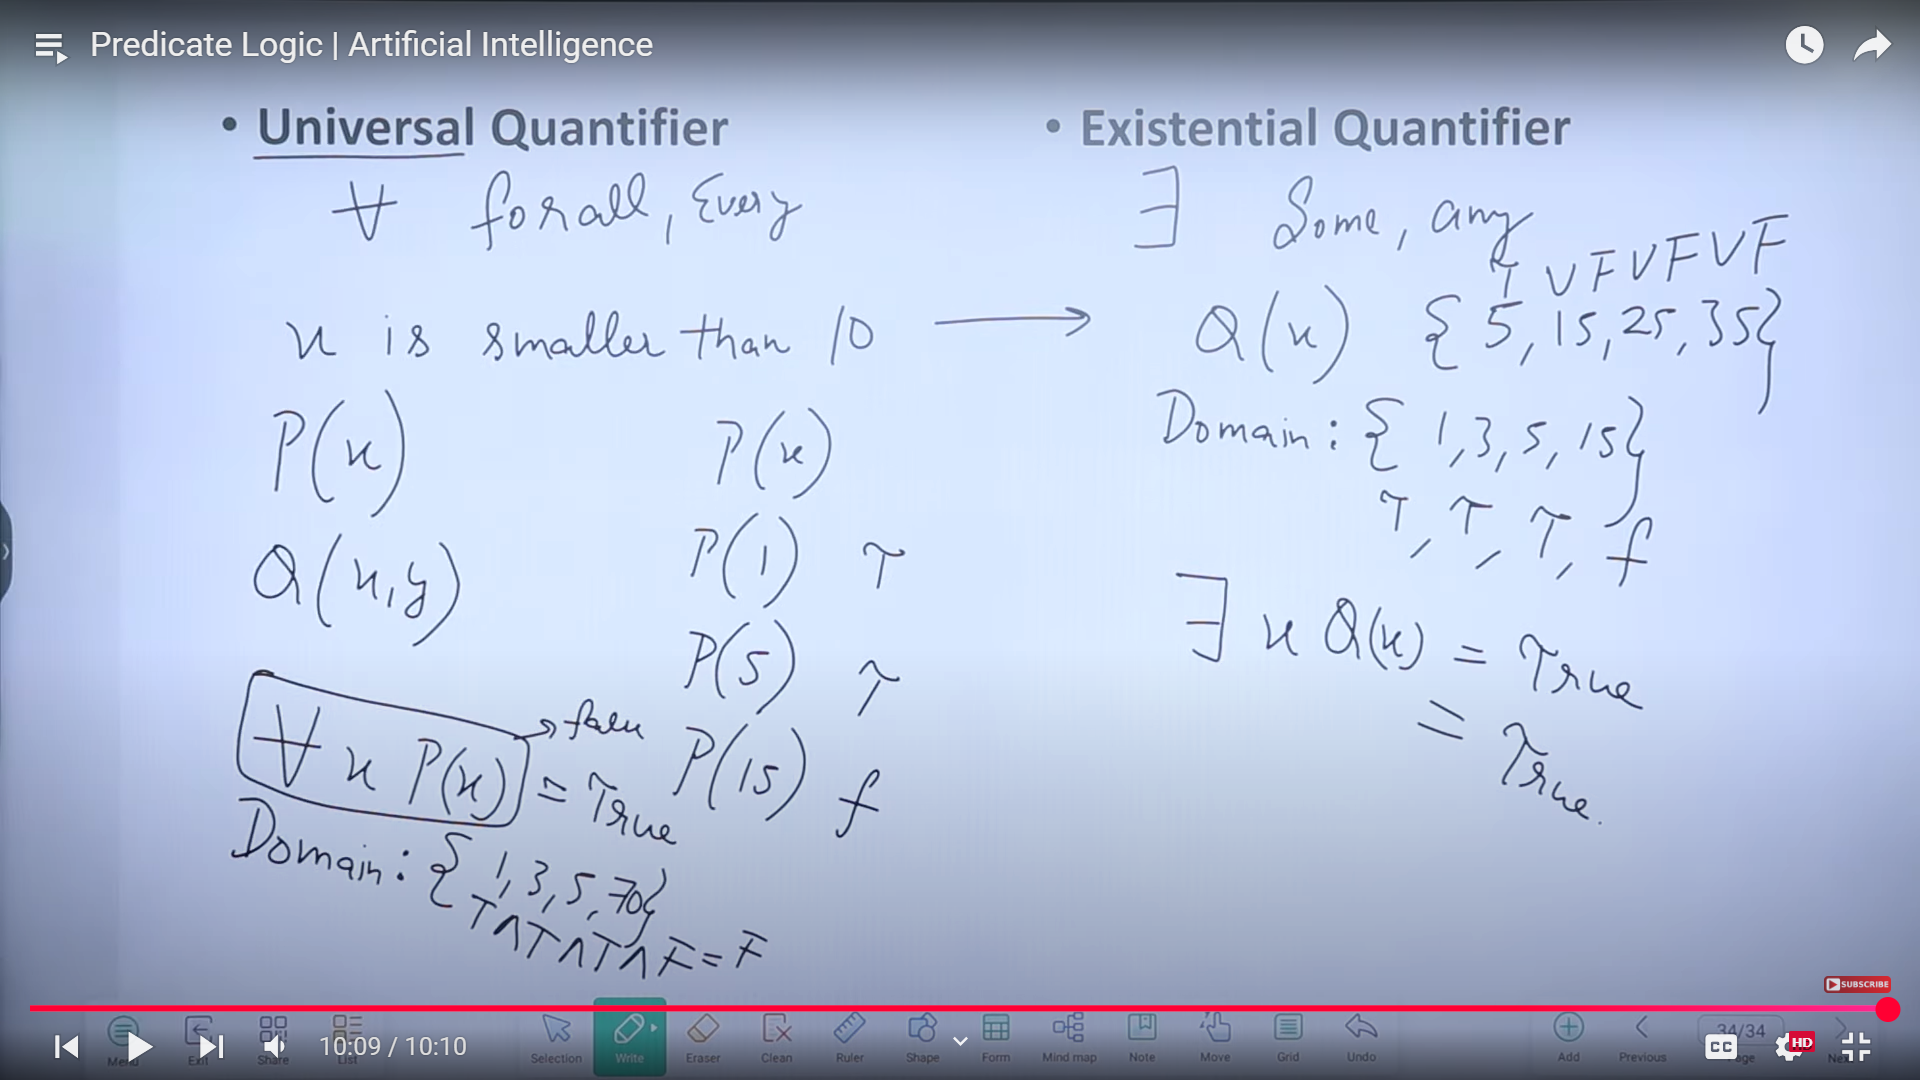 Predicate Logic | Artificial Intelligence
• Universal Quantifier
∀ for all, Every
x is smaller than 10 →
P(x)
Q(x,y)
∀ x P(x) = True
→ false
Domain: { 1, 3, 5, 70}
T∧T∧T∧F = F
P(x)
P(1) T
P(5) T
P(15) f
• Existential Quantifier
∃ Some, any
T V F V F V F
Q(x) { 5, 15, 25, 35}
Domain: { 1, 3, 5, 15}
T, T, T, f
∃ x Q(x) = True
= True.
SUBSCRIBE
10:09 / 10:10
Menu Exit Share List Selection Write Eraser Clean Ruler Shape Form Mind map Note Move Grid Undo Add Previous 34/34 Page Next
CC HD